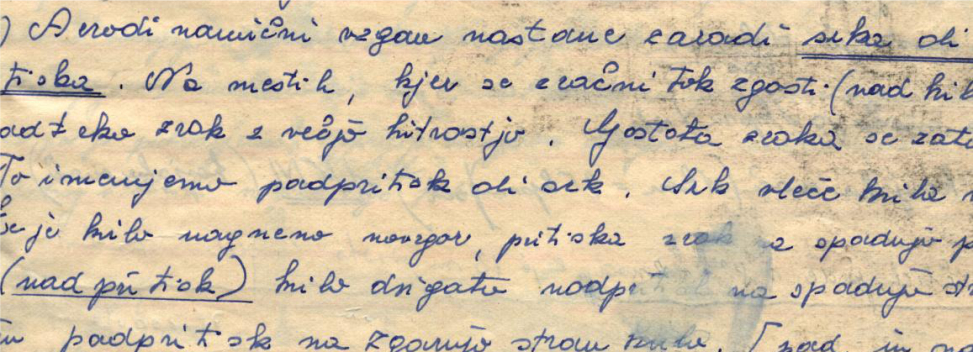 ) Aerodinamični vzgon nastane zaradi srka ali
tiska. Na mestih, kjer se zračni tok zgosti (nad kril
zrak z večjo hitrostjo. Gostota zraka se
To imenujemo podpritisk ali srk. Srk vleče krilo
je krilo nagneno navzgor, pritiska zrak na spodnjo
(nadpritisk) krilo dvigata nadpritisk na spodnjo
podpritisk na zgornjo stran krila. (nad in